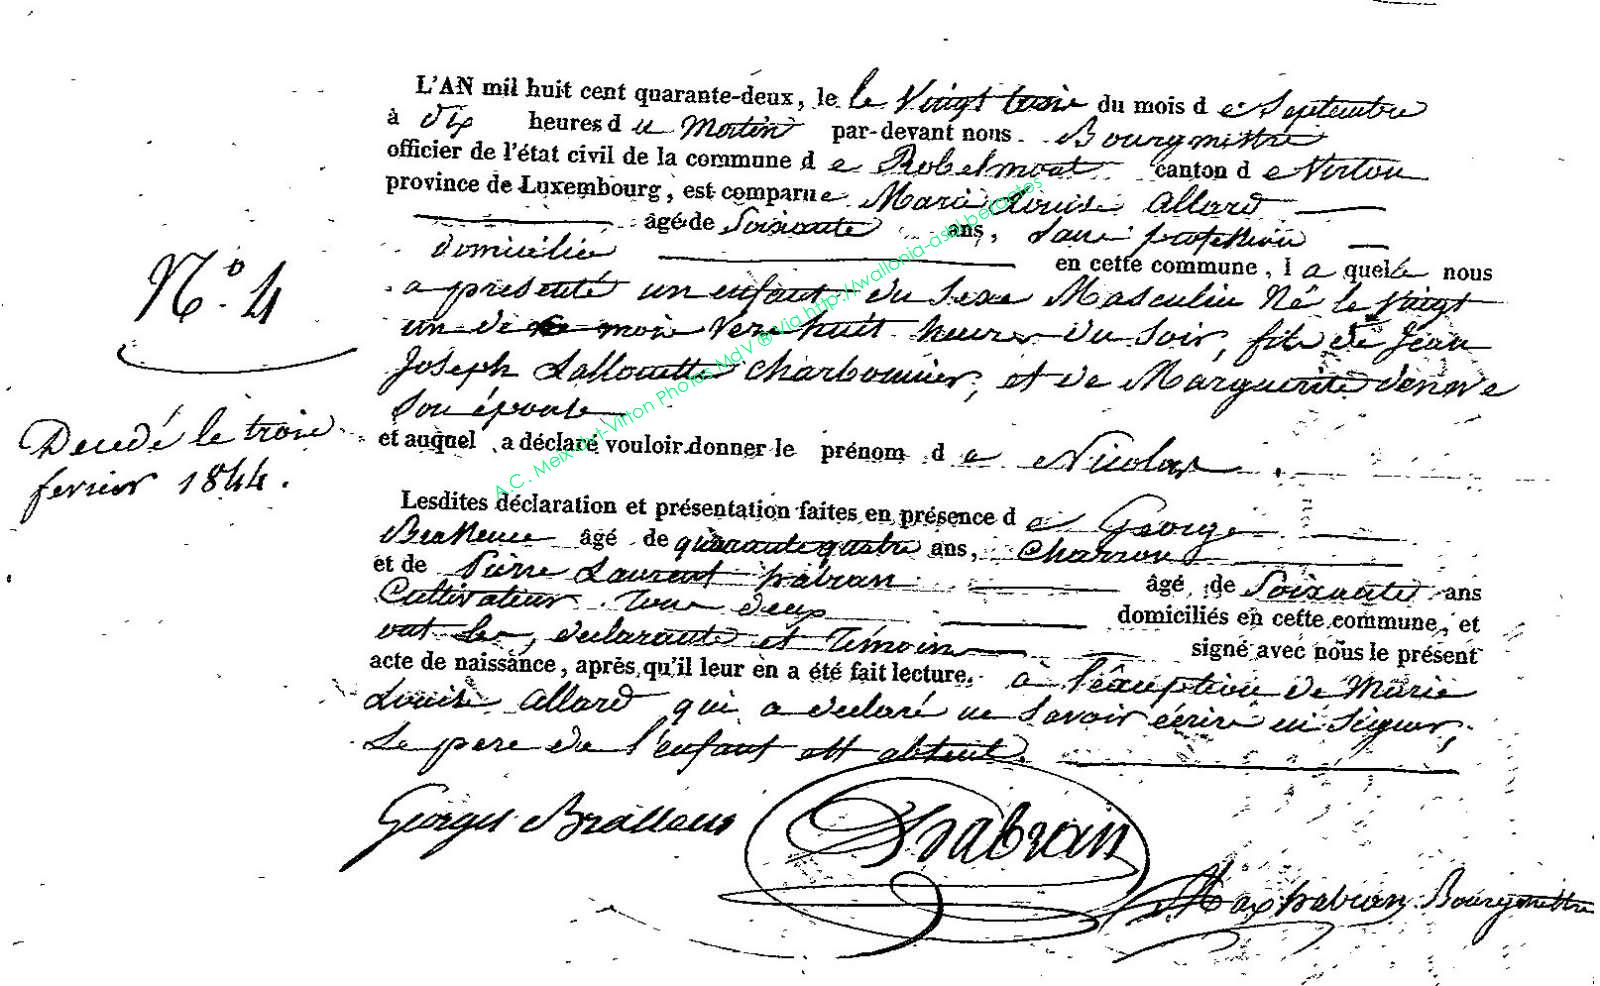 L'AN mil huit cent quarante-deux, le le Vingt trois du mois d e Septembre
à dix heures d u Matin par-devant nous Bourgmestre
officier de l'état civil de la commune d e Robelmont canton d e Virton
province de Luxembourg, est comparue Marie Louise Allard
âgé de Soixante ans, Sans profession
domicilié en cette commune, l a quelle nous
N.° 4
a présenté un enfant du Sexe Masculin Né le Vingt
un de mois Vers huit heures du Soir, fils de Jean
Joseph Lallouette Charbonnier, et de Marguerite
Son épouse
Decedé le trois
fevrier 1844.
et auquel a déclaré vouloir donner le prénom d e Nicolas
Lesdites déclaration et présentation faites en présence d e George
âgé de quarante quatre ans, Charron
et de Pierre Laurent habran âgé de Soixante ans
Cultivateur tous deux domiciliés en cette commune, et
ont les, declarante et Témoins signé avec nous le présent
acte de naissance, après qu'il leur en a été fait lecture. a l'éxception de Marie
Louise Allard qui a declaré ne Savoir écrire ni Signer,
Le pere de l'enfant est absent.
Georges habran
habran Bourgmestre
A.C. Meix-dvt-Virton Photos MdV ® Via http://wallonia-asbl.be